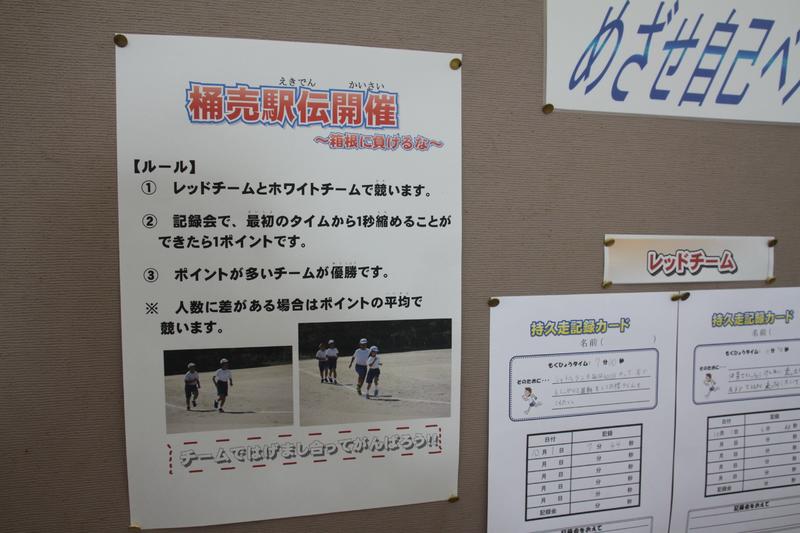 えきでん かいさい
桶売駅伝開催
～箱根に負けるな～
【ルール】
① レッドチームとホワイトチームで競います。
② 記録会で、最初のタイムから1秒縮めることが
できたら1ポイントです。
③ ポイントが多いチームが優勝です。
※ 人数に差がある場合はポイントの平均で
競います。
チームではげまし合ってがんばろう!!
めざせ自己ベ
レッドチーム
持久走記録カード
名前( )
もくひょうタイム: 7分 秒
そのために…
日付 記録
10月1日 7分 秒
月 日 分 秒
月 日 分 秒
月 日 分 秒
月 日 分 秒
記録会 分 秒
記録会をおえて
持久走記録カード
名前(
もくひょうタイム:
そのために…
日付 記録
月 日 分 秒
月 日 分
月 日 分
月 日 分
月 日 分
記録会 分
記録会をおえて